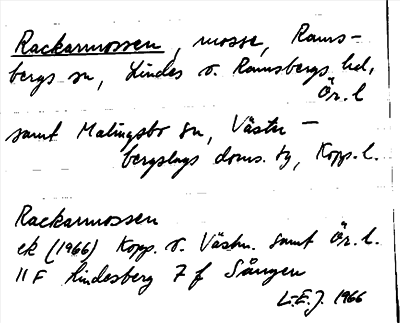 Rackarmossen, mosse, Rams-
bergs sn, Lindes o. Ramsbergs hd,
Ör. l
samt Malingsbo sn, Väster-
bergslags doms. tg, Kopp. l.
Rackarmossen
ek (1966) Kopp. o. Västm. samt Ör. l.
11 F Lindesberg 7 f Sången
L-E. J. 1966